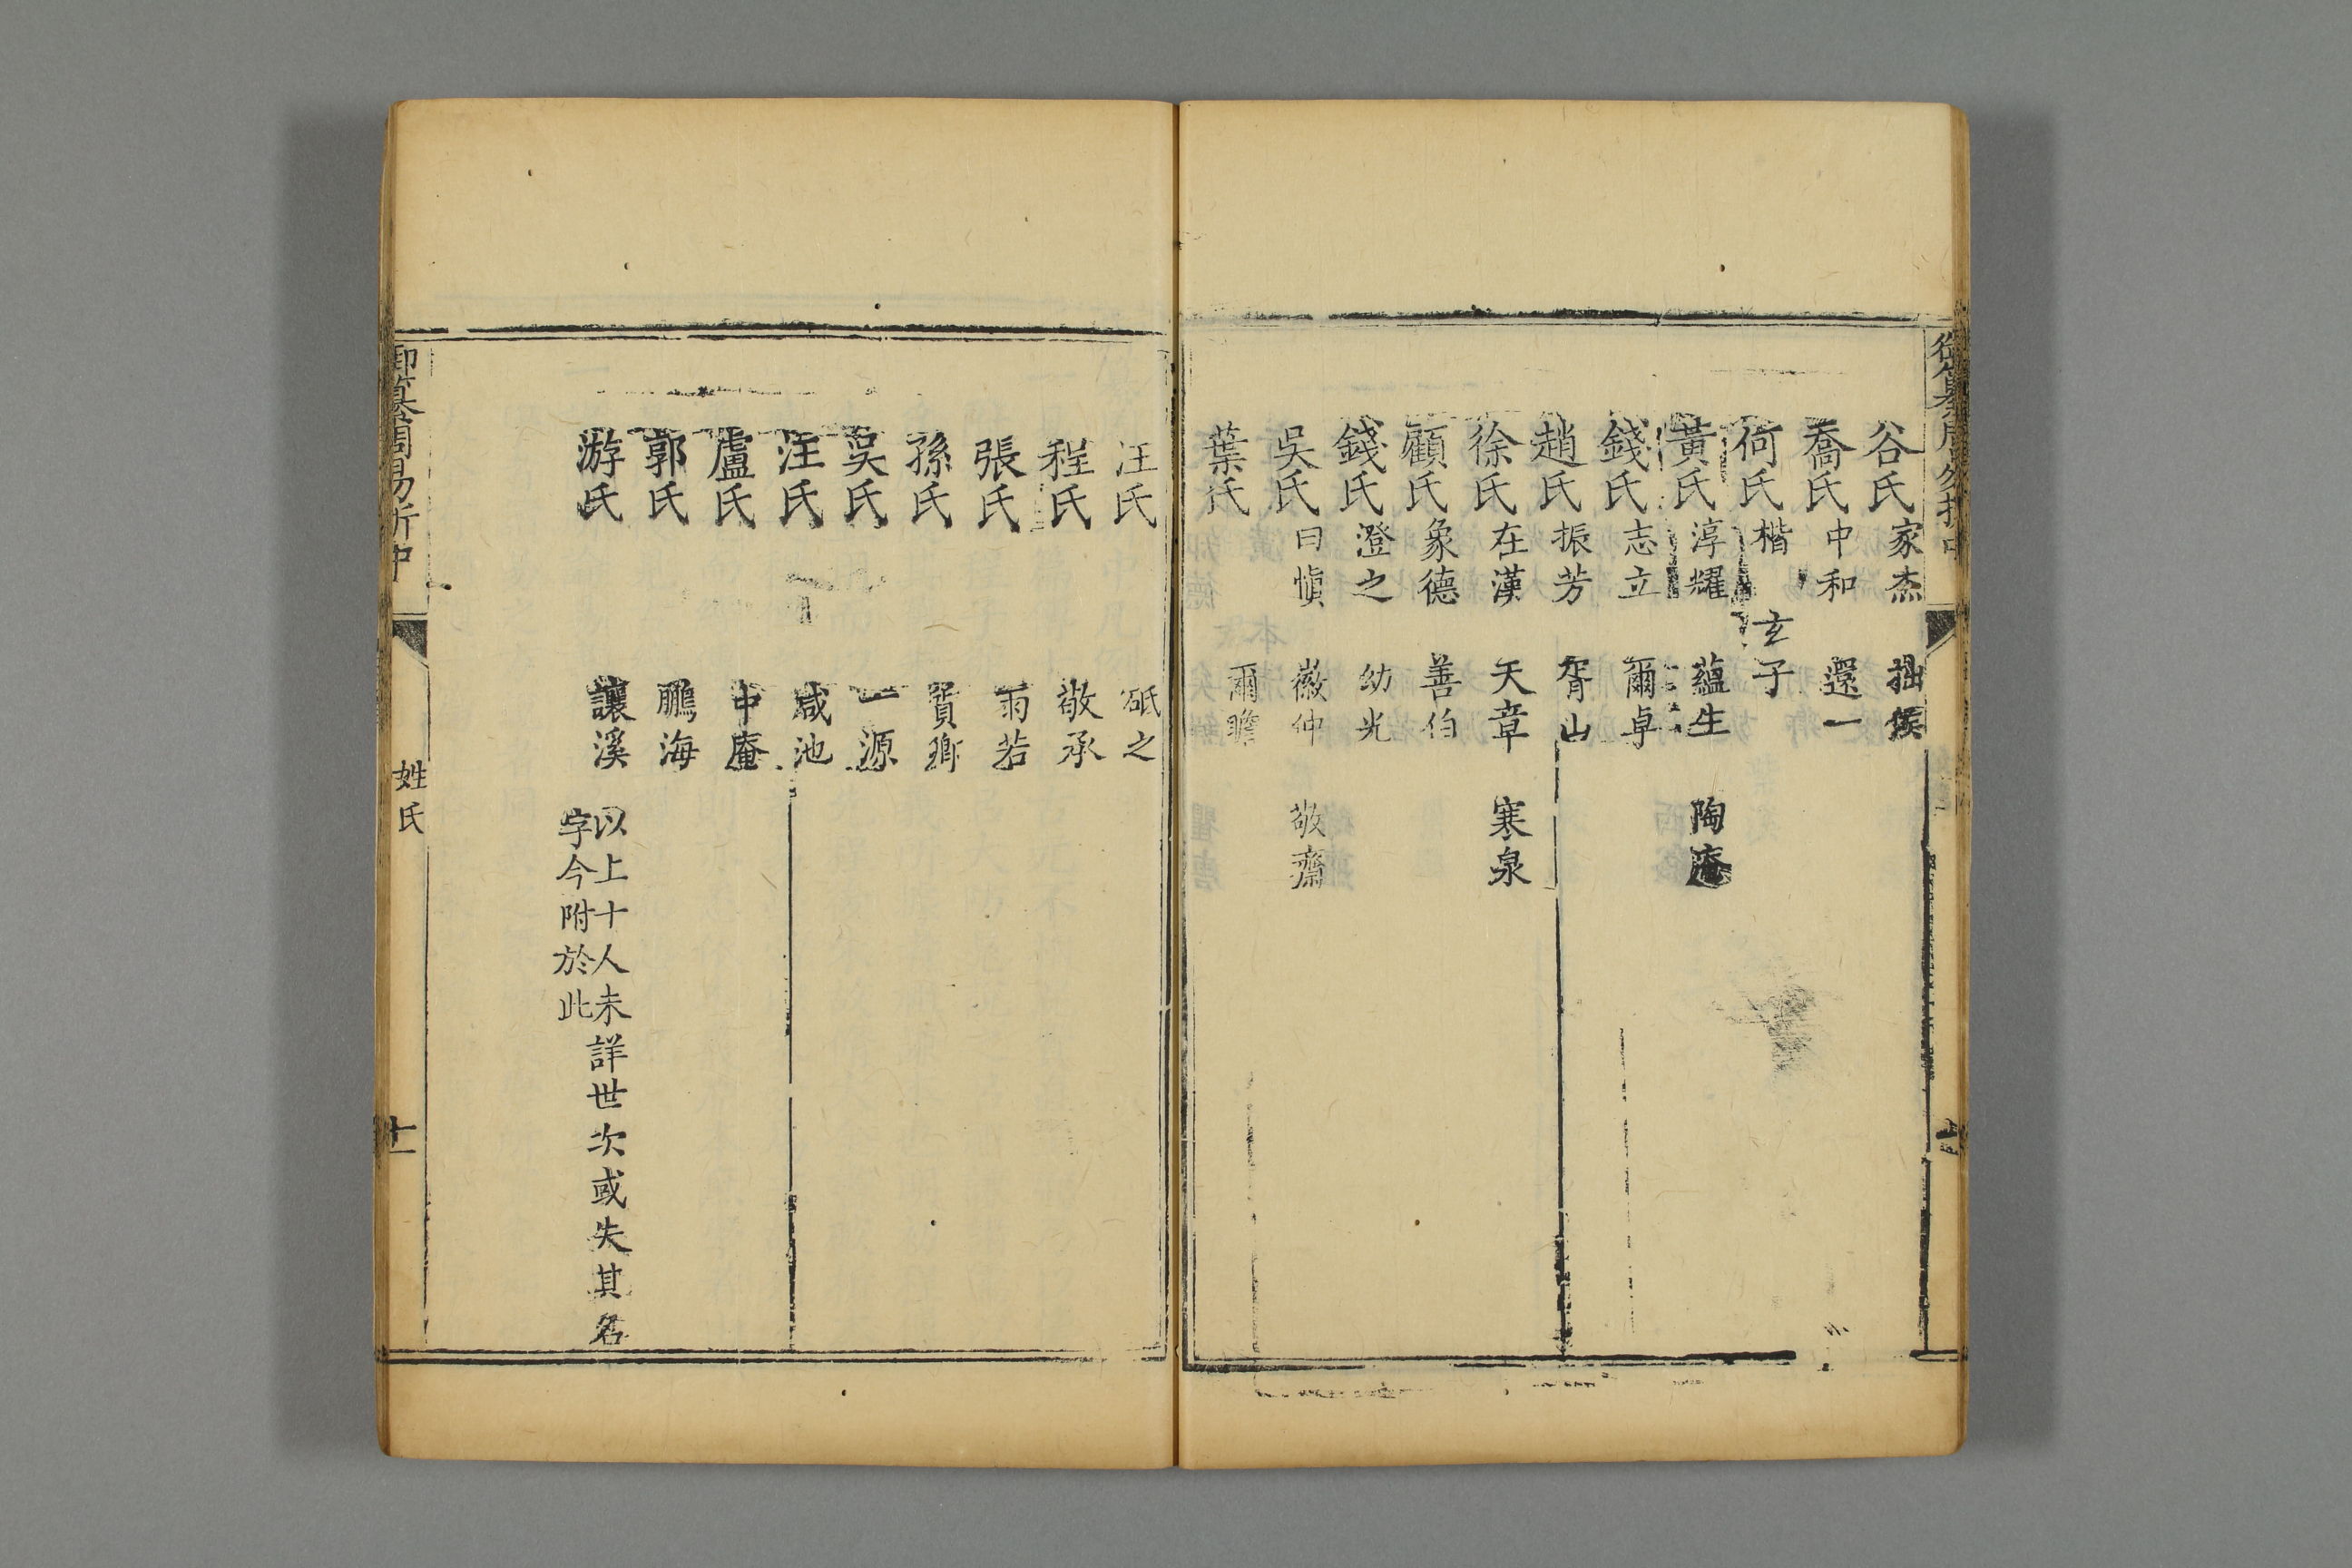 谷氏家杰 拙侯
喬氏中和 還一
何氏楷 玄子
黃氏淳耀 蘊生 陶菴
錢氏志立 爾卓
趙氏振芳 胥山
徐氏在漢 天章 寒泉
顧氏象德 善伯
錢氏澄之 幼光
吳氏曰愼 徽仲 敬齋
葉氏 爾瞻
汪氏 砥之
程氏 敬承
張氏 雨若
孫氏 質卿
吳氏 一源
汪氏 咸池
盧氏 中庵
郭氏 鵬海
游氏 讓溪
以上十人未詳世次或失其名
字今附於此
御纂周易折中
姓氏
十一